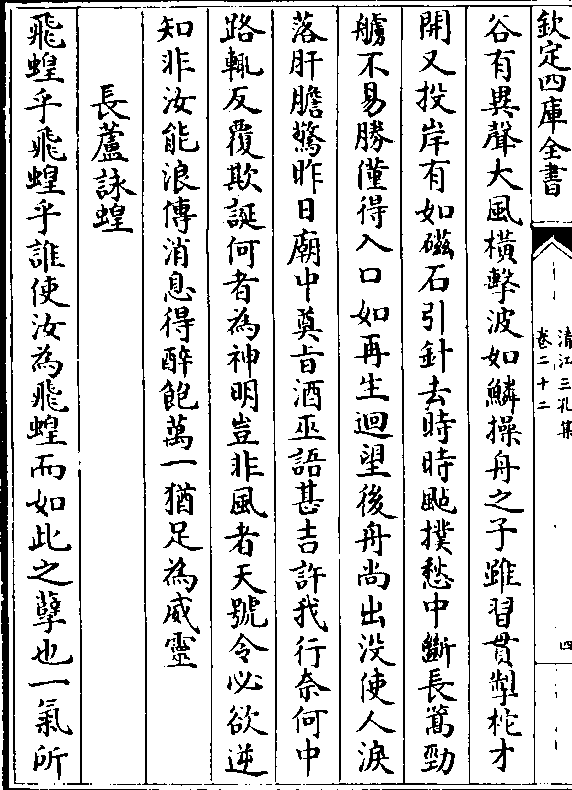 欽定四庫全書
清江三孔集
卷二十二
四
谷有異聲大風橫擊波如鱗操舟之子雖習貫掣柁才
開又投岸有如磁石引針去時時颭撲愁中斷長蒿勁
艣不易勝僅得入口如再生迴望後舟尚出没使人淚
落肝膽驚昨日廟中奠旨酒巫語甚吉許我行奈何中
路輒反覆欺誕何者為神明豈非風者天號令必欲逆
知非汝能浪傳消息得醉飽萬一猶足為威靈
長蘆詠蝗
飛蝗乎飛蝗乎誰使汝為飛蝗而如此之孽也一氣所